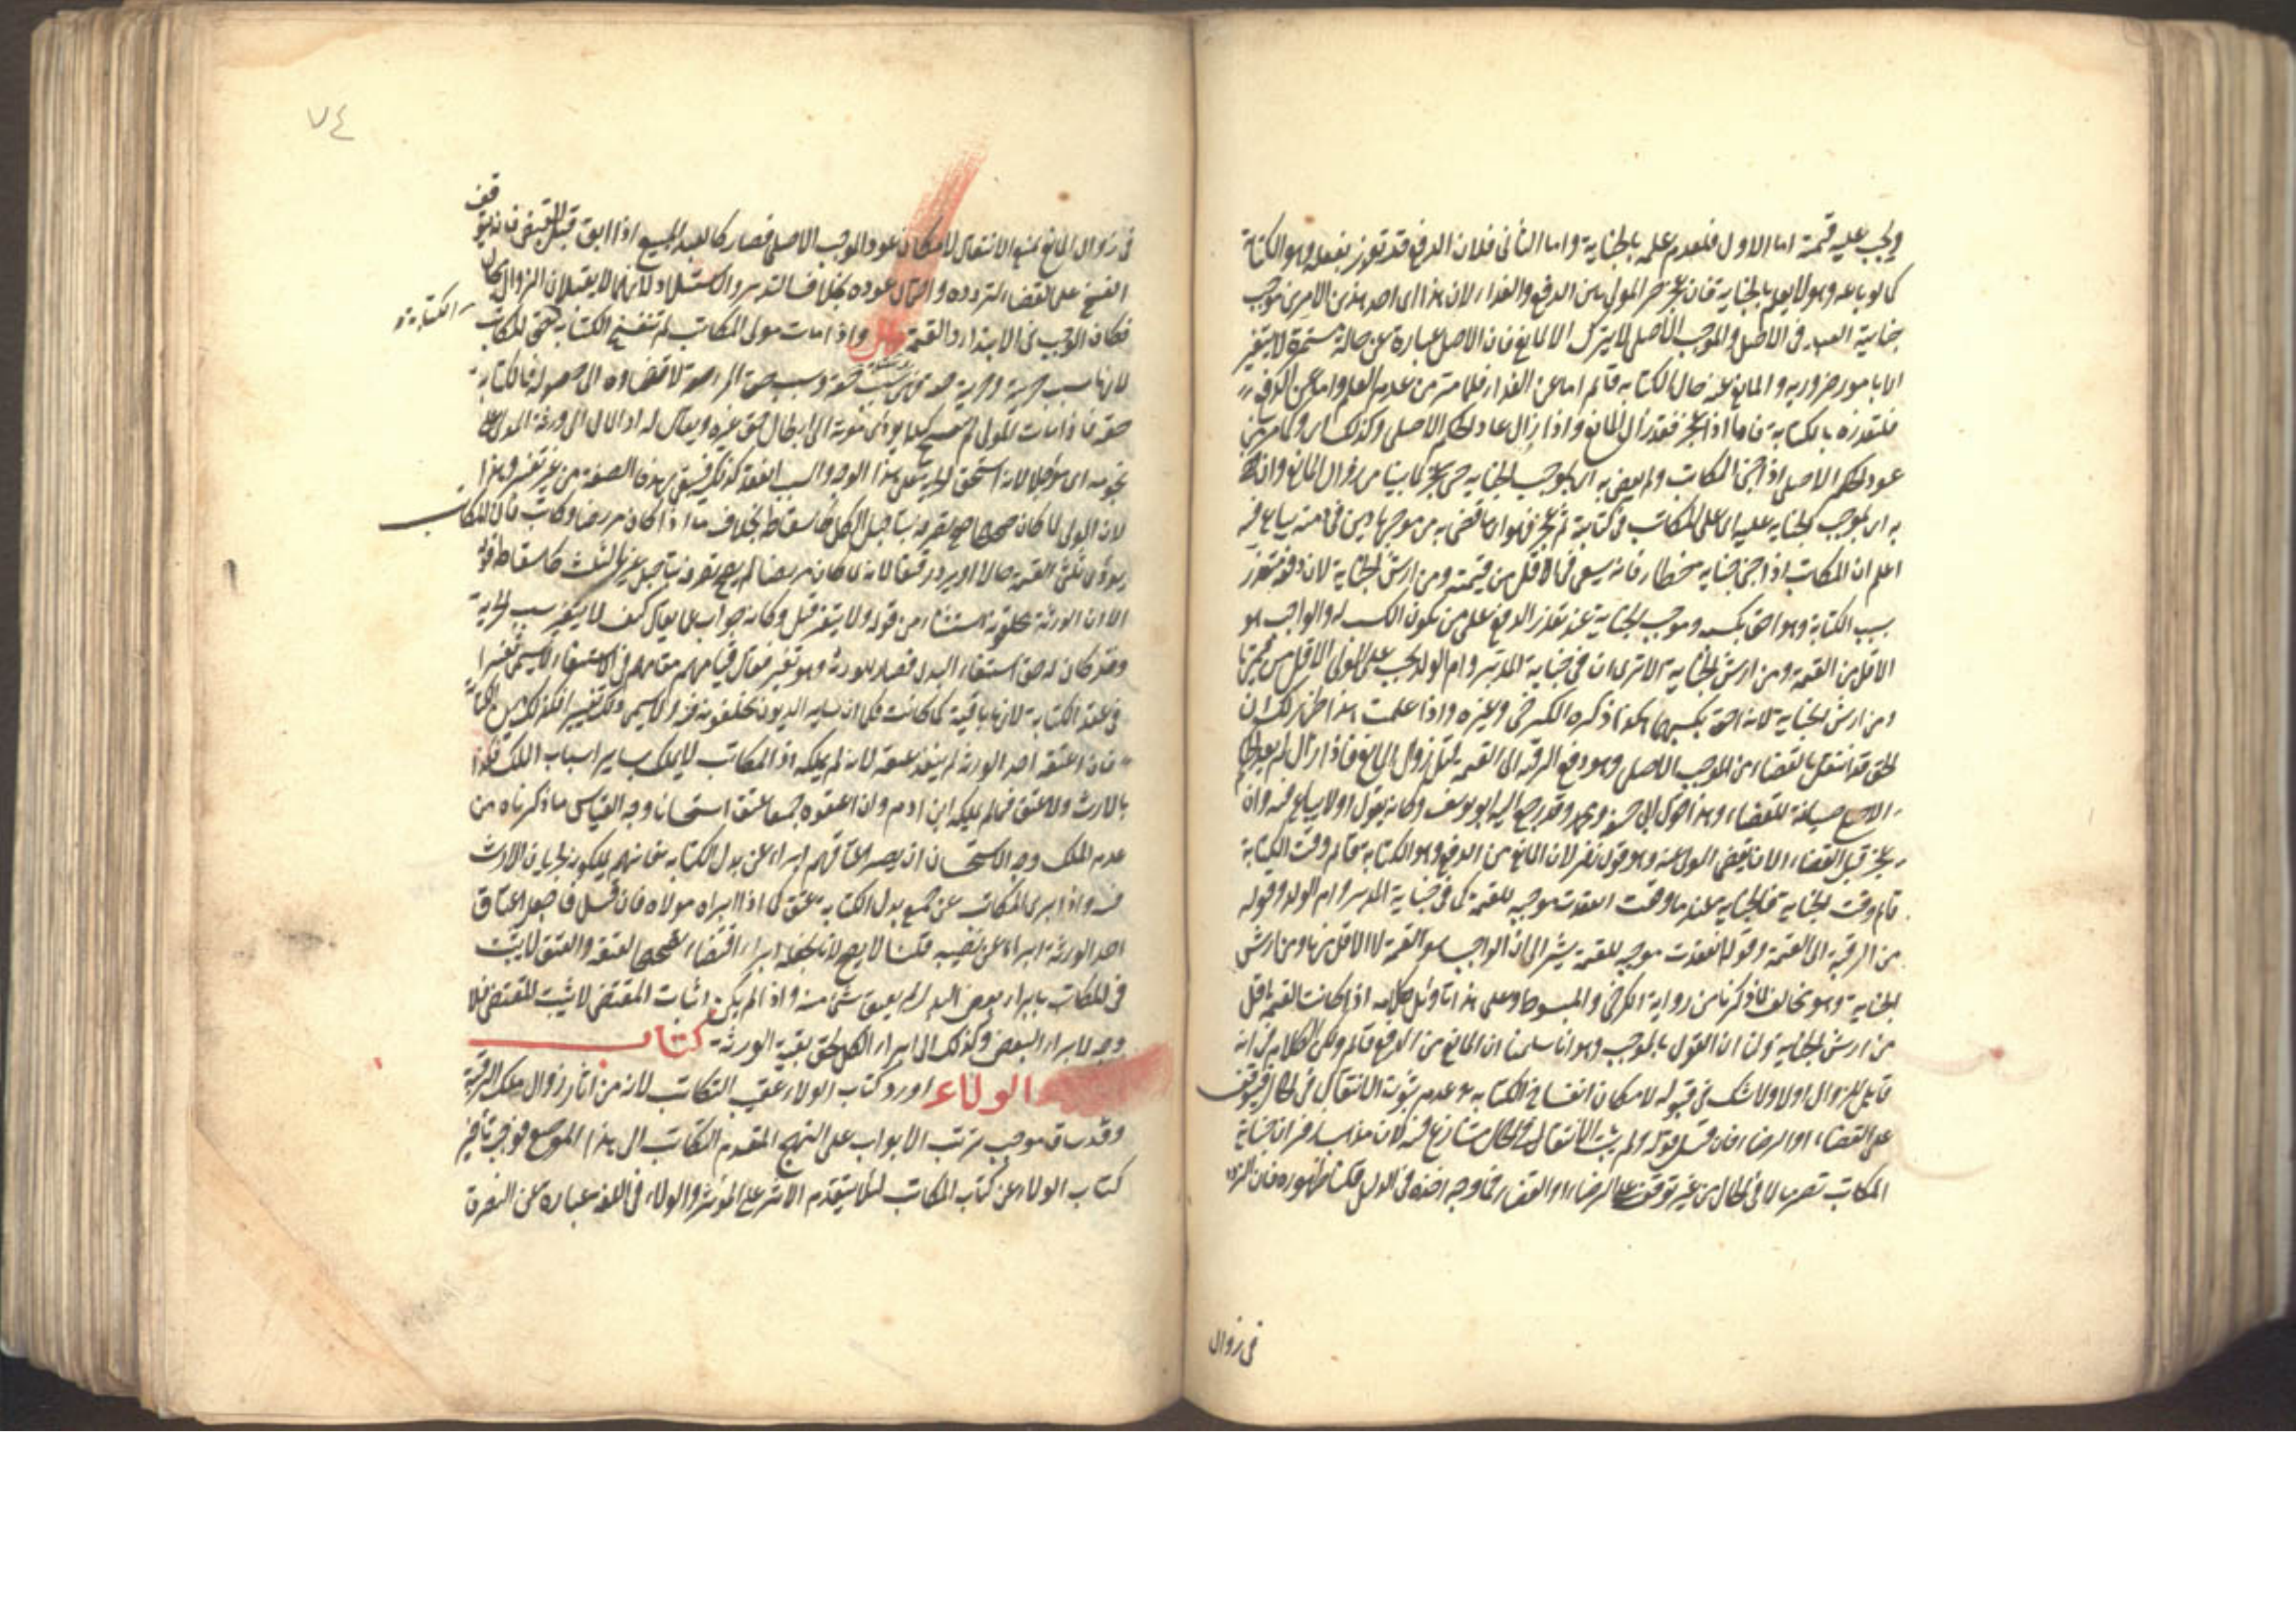 ويجب عليه قيمة اما الاول فلعدم علمه بالجناية واما الثاني فلان الدفع قد تعذر بفعله وهو الكتابة
كما لو باعه وهو لا يعلم بالجناية فان عجز خير المولى بين الدفع والفداء لان هذا اى احد هذين الامرين موجب
جناية العبد في الاصل والموجب الاصلى لا يترك الا لمانع فان الاصل عبارة عن حالة مستمرة لا يتغير
الا بامور ضرورية والمانع عنه حال الكتابة قائم اما عن الفداء فلما مر من عدم العلم واما عن الدفع
فلتعذره بالكتابة فاما اذا عجز فقد زال المانع واذا زال عاد الحكم الاصلى وكذلك اى وكما مر من
عود الحكم الاصلى اذا جنى المكاتب ولم يقض به اى بموجب الجناية حتى عجز لما بينا من زوال المانع وان قضى
به اى بموجب الجناية عليه اى على المكاتب في كتابته ثم عجز فهو اى ما قضى به من موجبها دين في ذمته يباع فيه
اعلم ان المكاتب اذا جنى جناية خطاء فانه يسعى في الاقل من قيمته ومن ارش الجناية لان دفعه متعذر
بسبب الكتابة وهو احق بكسبه وموجب الجناية عند تعذر الدفع على من يكون الكسب له والواجب هو
الاقل من القيمة ومن ارش الجناية الا ترى ان في جناية المدبر وام الولد يجب على المولى الاقل من قيمتها
ومن ارش الجناية لانه احق بكسبهما هكذا ذكره الكرخى وغيره واذا علمت هذا ظهر لك ان
الحق قد انتقل بالقضاء من الموجب الاصلى وهو دفع الرقبة الى القيمة قبل زوال المانع فاذا زال لم يعد الحكم
الاصلى صيانة للقضاء وهذا قول ابى حنيفة ومحمد وقد رجع اليه ابو يوسف وكان يقول اولا يباع فيه وان
عجز قبل القضاء الا ان يقضى المولى عنه وهو قول زفر لان المانع من الدفع وهو الكتابة قائم وقت الكتابة
قائم وقت الجناية فالجناية عندما وقعت انعقدت موجبة للقيمة كما في جناية المدبر وام الولد وقوله
من الرقبة الى القيمة وقوله انعقدت موجبة للقيمة يشير الى ان الواجب هو القيمة لا الاقل منها ومن ارش
الجناية وهو مخالف لما ذكرنا من رواية الكرخى والمبسوط وعلى هذا تأويل كلامه اذا كانت القيمة اقل
من ارش الجناية ولنا ان القول بالموجب وهو انا سلمنا ان المانع من الدفع قائم ولكن الكلام في انه
قابل للزوال اولا ولا شك في قبوله لامكان انفساخ الكتابة وعدم ثبوت الانتقال في الحال فيتوقف
على القضاء او الرضاء فان قيل قوله ولم يثبت الانتقال في الحال متنازع فيه لان مذهب زفر ان جناية
المكاتب تصير مالا في الحال من غير توقف على الرضاء او القضاء فما وجه اخذه في الدليل قلنا ظهوره فان التردد
في زوال
٧٤
في زوال المانع يمنع الانتقال لامكان عود الموجب الاصلى فصار كالعبد المبيع اذا ابق قبل القبض فانه يتوقف
الفسخ على القضاء لتردده واحتمال عوده بخلاف التدبير والاستيلاد لانهما لا يقبلان الزوال بحال
فكان الموجب في الابتداء القيمة فصل واذا مات مولى المكاتب لم تنفسخ الكتابة
الكتابة
لانها سبب حرية وحرية
حقه فاذا مات المولى لم تنفسخ كيلا يؤدى موته الى ابطال حق غيره ويقال له اد المال الى ورثة المولى على
نجومه اى مؤجلا لانه استحق الحرية على هذا الوجه والسبب انعقد كذلك فيبقى بهذه الصفة من غير تغيير وهذا
لان المولى لما كان صحيحا صح تصرفه بتأجيل الكل كاسقاطه بخلاف ما اذا كان مريضا وكاتب فان المكاتب
يؤدى ثلثى القيمة حالا او يرد رقيقا لانه لما كان مريضا لم يصح تصرفه بتأجيل غير الثلث كاسقاطه قوله
الا ان الورثة يخلفونه استثناء من قوله ولا يتغير قيل وكانه جواب عما يقال كيف لا يتغير سبب الحرية
وقد كان له حق استيفاء البدل فصار للورثة وهو تغير فقال قيامهم مقامهم في الاستيفاء لا يسمى تغييرا
في عقد الكتابة لانها باقية كما كانت كما ان ساير الديون يخلفونه فيه ولا يسمى ذلك تغييرا فكذلك دين الكتابة
فان اعتقه احد الورثة لم ينفذ عتقه لانه لم يملكه اذ المكاتب لا يملك بساير اسباب الملك فكذا
بالارث ولا عتق فيما لم يملكه ابن ادم وان اعتقوه جميعا عتق استحسانا وجه القياس ما ذكرناه من
عدم الملك وجه الاستحسان ان يصير اعتاقهم ابراء عن بدل الكتابة فانهم يملكونه لجريان الارث
فيه واذا برئ المكاتب عن جميع بدل الكتابة عتق كما اذا ابراه مولاه فان قيل فاجعل اعتاق
احد الورثة ابراء عن نصيبه قلنا لا يصح لانا نجعله ابراء اقتضاء تصحيحا لعتقه والعتق لا يثبت
في المكاتب بابراء بعض البدل لم يعتق شئ منه واذا لم يكن اثبات المقتضى لا يثبت المقتضى فلا
وجه لابراء البعض وكذلك الى ابراء الكل لحق بقية الورثة كتاب
الولاء اورد كتاب الولاء عقيب المكاتب لانه من اثار زوال ملك الرقبة
وقد ساق موجب ترتيب الابواب على النهج المتقدم المكاتب الى هذا الموضع فوجب تأخير
كتاب الولاء عن كتاب المكاتب لئلا يتقدم الاثر على المؤثر والولاء في اللغة عبارة عن النصرة